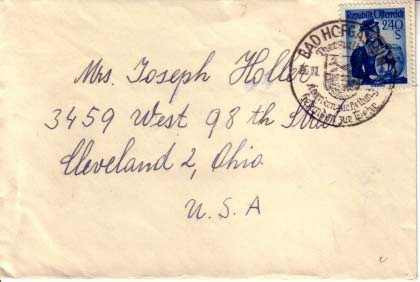 Republik Österreich
2.40
S
BAD HOFG
Mrs. Joseph Holler
3459 West 98 th
Cleveland 2, Ohio
U.S.A